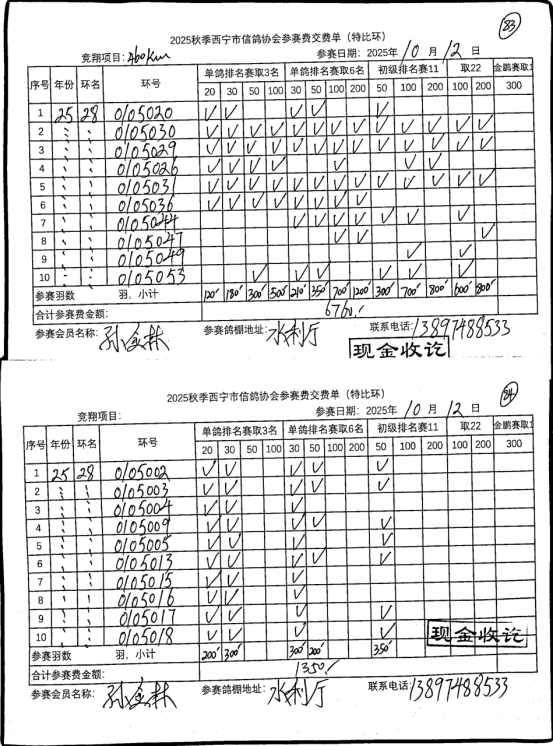 83
2025秋季西宁市信鸽协会参赛费交费单（特比环）
竞翔项目：260km 参赛日期：2025年10月12日
序号 年份 环名 环号 单鸽排名赛取3名 单鸽排名赛取6名 初级排名赛11 取22 金鹏赛取1
20 30 50 100 30 50 100 200 50 100 200 100 200 300
1 25 28 0105020 ✓ ✓ ✓ ✓ ✓
2 〃 〃 0105030 ✓ ✓ ✓ ✓ ✓ ✓ ✓ ✓ ✓ ✓ ✓ ✓ ✓
3 〃 〃 0105029 ✓ ✓ ✓ ✓ ✓ ✓ ✓ ✓ ✓ ✓ ✓ ✓ ✓
4 〃 〃 0105026 ✓ ✓ ✓ ✓ ✓ ✓ ✓
5 〃 〃 0105031 ✓ ✓ ✓ ✓ ✓ ✓ ✓ ✓ ✓ ✓ ✓ ✓ ✓
6 〃 〃 0105036 ✓ ✓ ✓ ✓ ✓ ✓ ✓ ✓
7 〃 〃 0105044 ✓ ✓ ✓ ✓ ✓ ✓ ✓
8 〃 〃 0105047 ✓ ✓ ✓
9 〃 〃 0105049 ✓ ✓
10 〃 〃 0105053 ✓ ✓ ✓ ✓ ✓ ✓
参赛羽数 羽，小计 120 180 300 500 210 350 700 1200 300 700 800 600 800
合计参赛费金额： 6760
参赛会员名称：孙金林 参赛鸽棚地址：水利厅 联系电话：13897488533
现金收讫
84
2025秋季西宁市信鸽协会参赛费交费单（特比环）
竞翔项目： 参赛日期：2025年10月12日
序号 年份 环名 环号 单鸽排名赛取3名 单鸽排名赛取6名 初级排名赛11 取22 金鹏赛取1
20 30 50 100 30 50 100 200 50 100 200 100 200 300
1 25 28 0105002 ✓ ✓ ✓ ✓ ✓
2 〃 〃 0105003 ✓ ✓ ✓ ✓ ✓
3 〃 〃 0105004 ✓ ✓ ✓
4 〃 〃 0105009 ✓ ✓ ✓ ✓ ✓
5 〃 〃 0105005 ✓ ✓ ✓ ✓
6 〃 〃 0105013 ✓ ✓ ✓ ✓ ✓
7 〃 〃 0105015 ✓ ✓ ✓
8 〃 〃 0105016 ✓ ✓ ✓
9 〃 〃 0105017 ✓ ✓ ✓ ✓
10 〃 〃 0105018 ✓ ✓ ✓ ✓ 现金收讫
参赛羽数 羽，小计 200 300 300 200 350
合计参赛费金额： 1350
参赛会员名称：孙金林 参赛鸽棚地址：水利厅 联系电话：13897488533